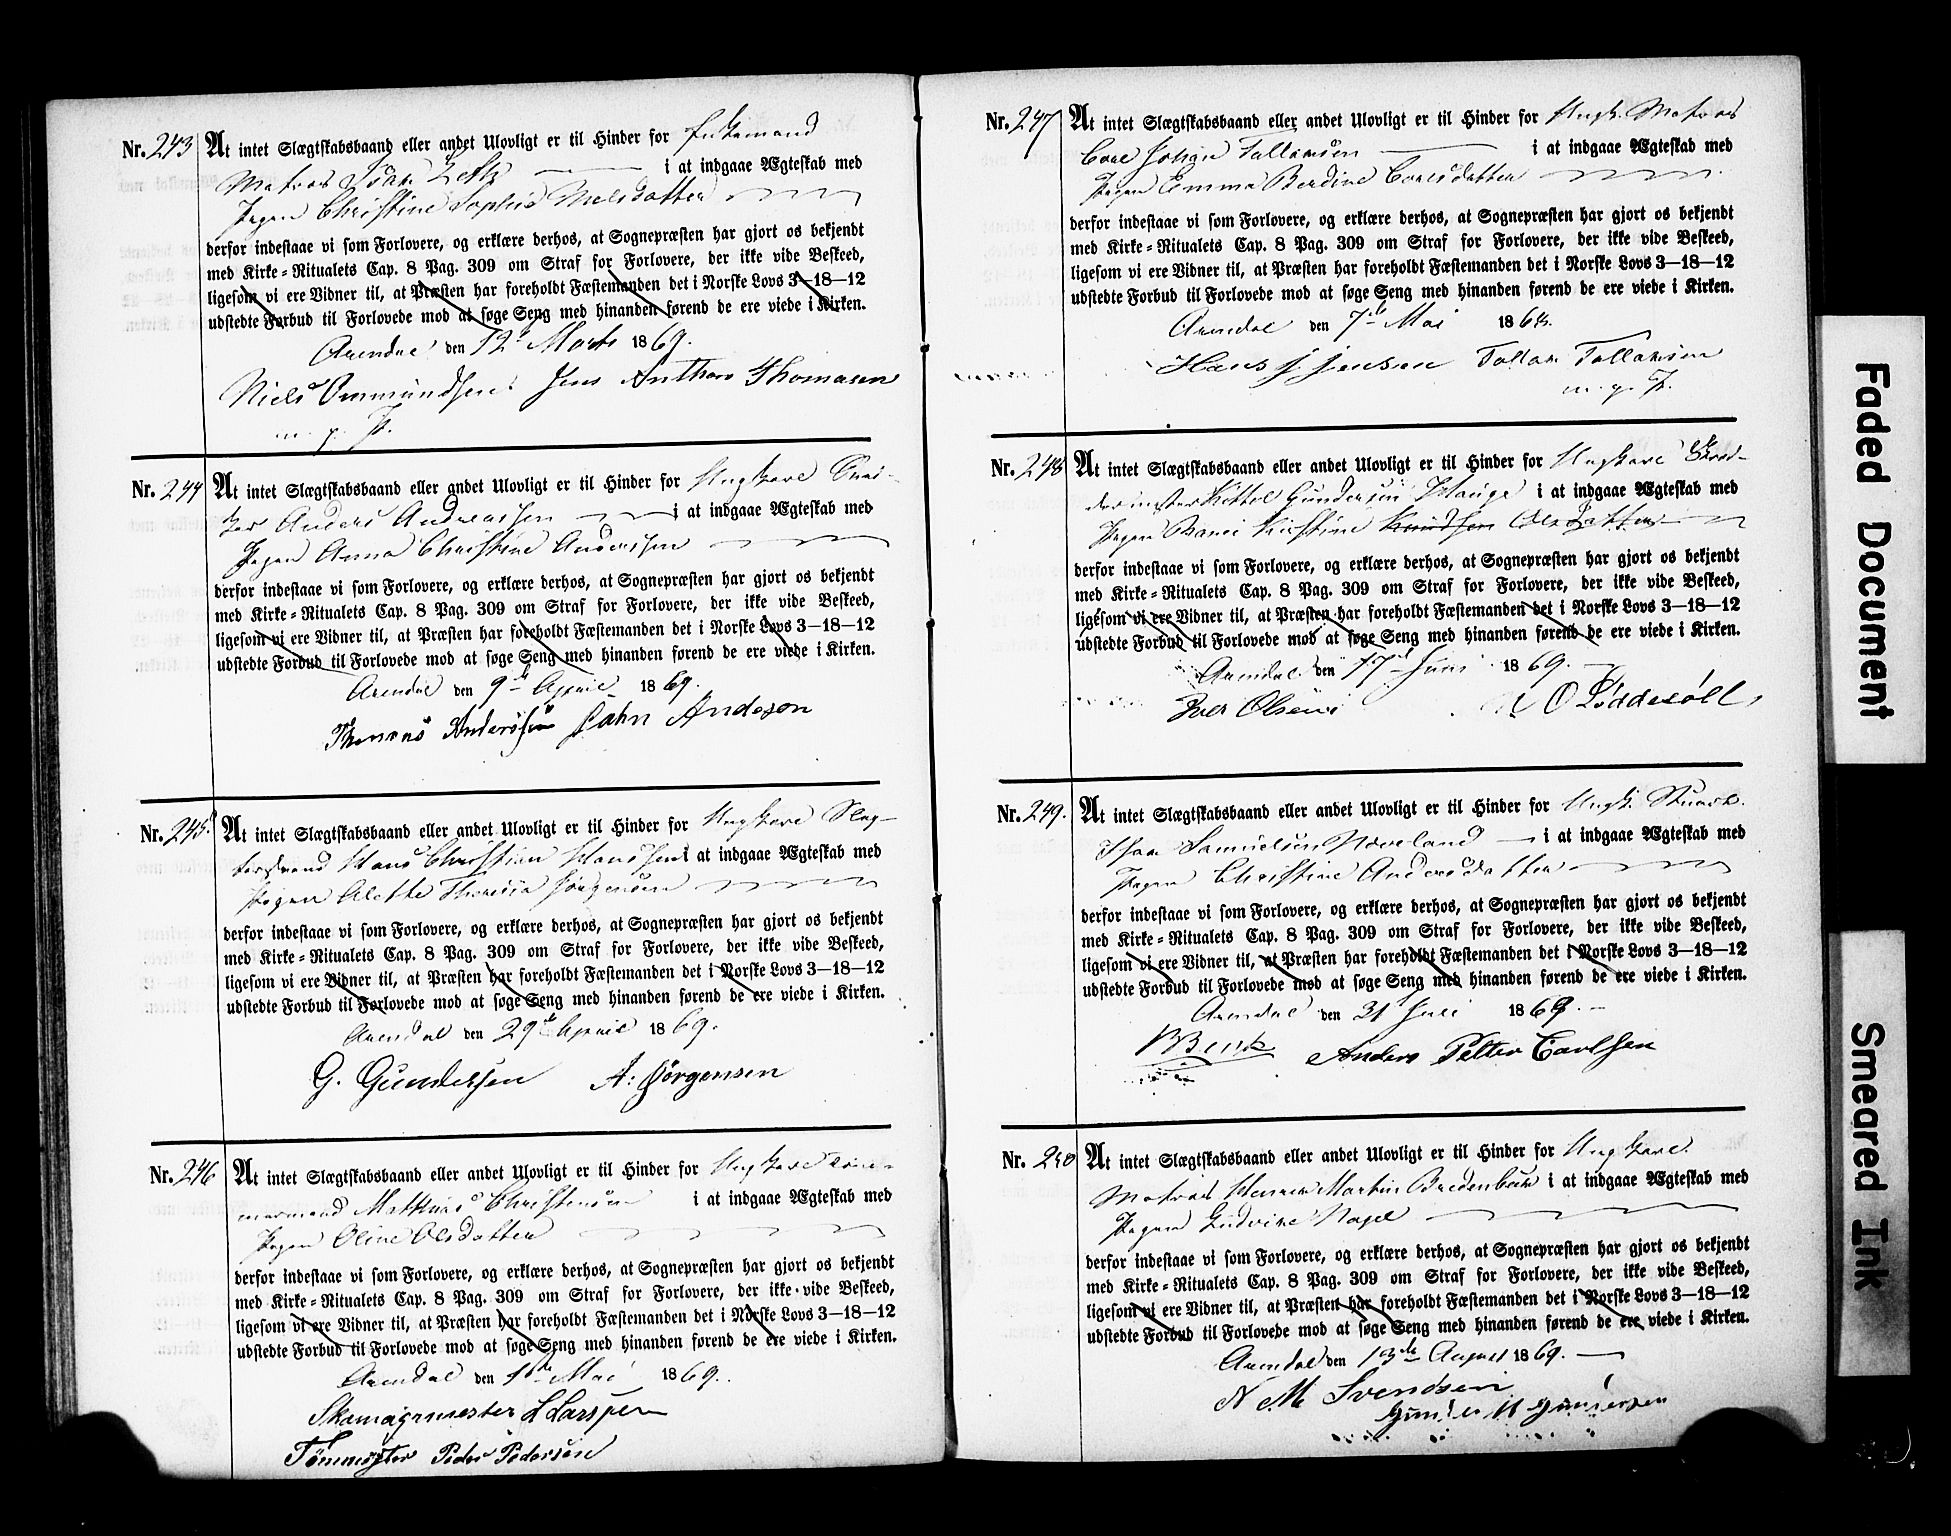 Nr. 243 At intet Slægtskabsbaand eller andet Ulovligt er til Hinder for Enkemand
Matros Isak i at indgaae Ægteskab med
Pigen Christine Sophie Nielsdatter
derfor indestaae vi som Forlovere, og erklære derhos, at Sognepræsten har gjort os bekjendt
med Kirke-Ritualets Cap. 8 Pag. 309 om Straf for Forlovere, der ikke vide Beskeed,
ligesom vi ere Vidner til, at Præsten har foreholdt Fæstemanden det i Norske Lovs 3—18—12
udstedte Forbud til Forlovede mod at søge Seng med hinanden førend de ere viede i Kirken.
Arendal den 12te Marts 1869.
Niels Ommundsen Jens Anthon Thomasen
m. p. P.
Nr. 244 At intet Slægtskabsbaand eller andet Ulovligt er til Hinder for Ungkarl Sned-
ker Anders Andreassen i at indgaae Ægteskab med
Pigen Anna Christine Anderssen
derfor indestaae vi som Forlovere, og erklære derhos, at Sognepræsten har gjort os bekjendt
med Kirke-Ritualets Cap. 8 Pag. 309 om Straf for Forlovere, der ikke vide Beskeed,
ligesom vi ere Vidner til, at Præsten har foreholdt Fæstemanden det i Norske Lovs 3—18—12
udstedte Forbud til Forlovede mod at søge Seng med hinanden førend de ere viede i Kirken.
Arendal den 9de April 1869.
Thomas Anderssen John Andeson
Nr. 245 At intet Slægtskabsbaand eller andet Ulovligt er til Hinder for Ungkarl Slag-
tersvend Hans Christian Hanssen i at indgaae Ægteskab med
Pigen Alette Theresia Jörgensen
derfor indestaae vi som Forlovere, og erklære derhos, at Sognepræsten har gjort os bekjendt
med Kirke-Ritualets Cap. 8 Pag. 309 om Straf for Forlovere, der ikke vide Beskeed,
ligesom vi ere Vidner til, at Præsten har foreholdt Fæstemanden det i Norske Lovs 3—18—12
udstedte Forbud til Forlovede mod at søge Seng med hinanden førend de ere viede i Kirken.
Arendal den 29de April 1869.
G. Gundersen A: Jörgensen
Nr. 246 At intet Slægtskabsbaand eller andet Ulovligt er til Hinder for Ungkarl
Mathias Christensen i at indgaae Ægteskab med
Pigen Oline Olsdatter
derfor indestaae vi som Forlovere, og erklære derhos, at Sognepræsten har gjort os bekjendt
med Kirke-Ritualets Cap. 8 Pag. 309 om Straf for Forlovere, der ikke vide Beskeed,
ligesom vi ere Vidner til, at Præsten har foreholdt Fæstemanden det i Norske Lovs 3—18—12
udstedte Forbud til Forlovede mod at søge Seng med hinanden førend de ere viede i Kirken.
Arendal den 1ste Mai 1869.
Skomagermester L Larssen
Peder Pedersen
Nr. 247 At intet Slægtskabsbaand eller andet Ulovligt er til Hinder for Ungk. Matros
Carl Johan Tallaksen i at indgaae Ægteskab med
Pigen Emma Berdine Carlsdatter
derfor indestaae vi som Forlovere, og erklære derhos, at Sognepræsten har gjort os bekjendt
med Kirke-Ritualets Cap. 8 Pag. 309 om Straf for Forlovere, der ikke vide Beskeed,
ligesom vi ere Vidner til, at Præsten har foreholdt Fæstemanden det i Norske Lovs 3—18—12
udstedte Forbud til Forlovede mod at søge Seng med hinanden førend de ere viede i Kirken.
Arendal den 7de Mai
Hans J Jensen Tallak Tallaksen
m. p. P.
Nr. 248 At intet Slægtskabsbaand eller andet Ulovligt er til Hinder for Ungkarl Skræd-
dermester Kittel Gundersen Hauge i at indgaae Ægteskab med
Pigen Karen Kirstine Knudsen Olsdatter
derfor indestaae vi som Forlovere, og erklære derhos, at Sognepræsten har gjort os bekjendt
med Kirke-Ritualets Cap. 8 Pag. 309 om Straf for Forlovere, der ikke vide Beskeed,
ligesom vi ere Vidner til, at Præsten har foreholdt Fæstemanden det i Norske Lovs 3—18—12
udstedte Forbud til Forlovede mod at søge Seng med hinanden førend de ere viede i Kirken.
Arendal den 17de Juni 1869.
Iver Olsen O Løddesöll
Nr. 249. At intet Slægtskabsbaand eller andet Ulovligt er til Hinder for Ungk. Stuart
Samuelsen Noveland i at indgaae Ægteskab med
Pigen Christine Andersdatter
derfor indestaae vi som Forlovere, og erklære derhos, at Sognepræsten har gjort os bekjendt
med Kirke-Ritualets Cap. 8 Pag. 309 om Straf for Forlovere, der ikke vide Beskeed,
ligesom vi ere Vidner til, at Præsten har foreholdt Fæstemanden det i Norske Lovs 3—18—12
udstedte Forbud til Forlovede mod at søge Seng med hinanden førend de ere viede i Kirken.
Arendal den 31 Juli 1869.
Anders Petter Carlsen
Nr. 250 At intet Slægtskabsbaand eller andet Ulovligt er til Hinder for Ungkarl
Matros Henrik Martin Bredenbeck i at indgaae Ægteskab med
Pigen Ludvike Nagel
derfor indestaae vi som Forlovere, og erklære derhos, at Sognepræsten har gjort os bekjendt
med Kirke-Ritualets Cap. 8 Pag. 309 om Straf for Forlovere, der ikke vide Beskeed,
ligesom vi ere Vidner til, at Præsten har foreholdt Fæstemanden det i Norske Lovs 3—18—12
udstedte Forbud til Forlovede mod at søge Seng med hinanden førend de ere viede i Kirken.
Arendal den 13de August 1869.
N M Svendsen
Gunder H Gundersen
Faded Document
Smeared Ink